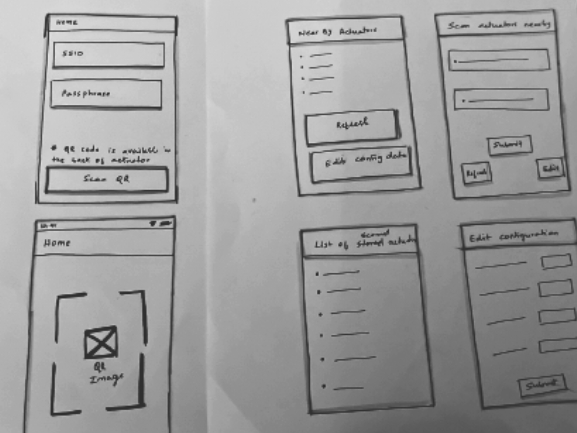 Home
SSID
Passphrase
* QR code is available in
the back of actuator
Scan QR
Near By Actuators
Refresh
Edit config data
Scan actuators nearby
Submit
Refresh
Edit
Home
QR
Image
Scanned
List of Stored actuators
Edit configuration
Submit